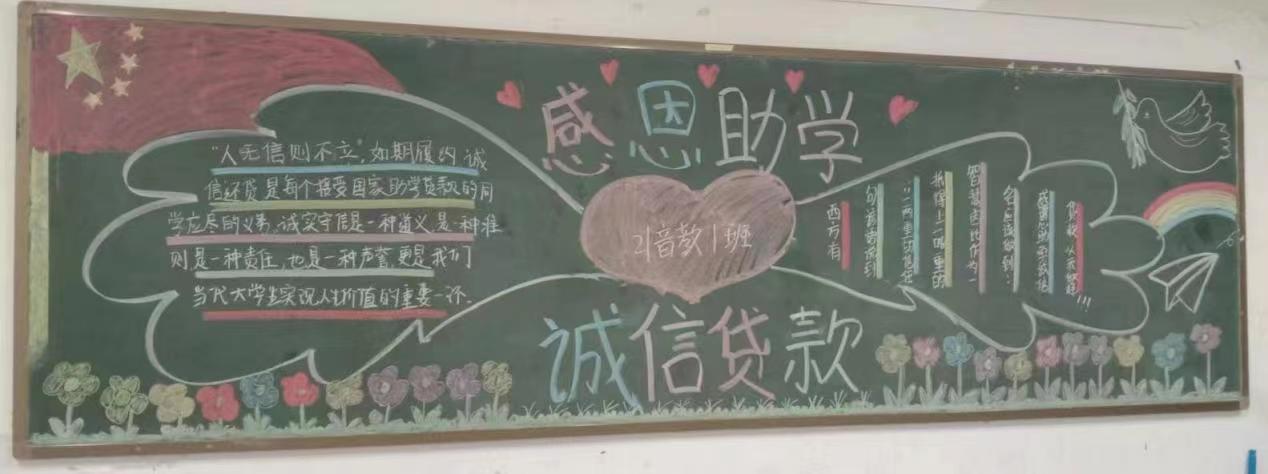 感恩助学
"人无信则不立",如期履约诚
信还贷是每个接受国家助学贷款的同
学应尽的义务,诚实守信是一种道义,是一种准
则是一种责任,也是一种声誉,更是我们
当代大学生实现人生价值的重要一环.
21音教1班
西方有
句谚语说到
:一两重的真诚
抵得上一吨重的
智慧因此作为一
名应该做到:
诚信贷款